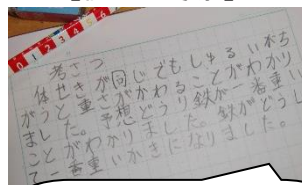 0 1 2 3 4 5 6
考さつ
体せきが同じでもしゅるいがち
がうと、重さがかわることがわかり
ました。予想どうり鉄が一番重い
ことがわかりました。鉄がどうし
て一番重いかきになりました。